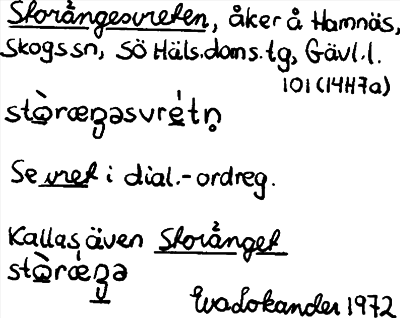 Storångesvreten, åker å Hamnäs,
Skogs sn, Sö Häls. doms. tg, Gävl. l.
101 (14H7a)
stòræŋəsvrétṇ
Se vret i dial.-ordreg.
Kallas även Storånget
stòrǽŋə
Eva Lokander 1972